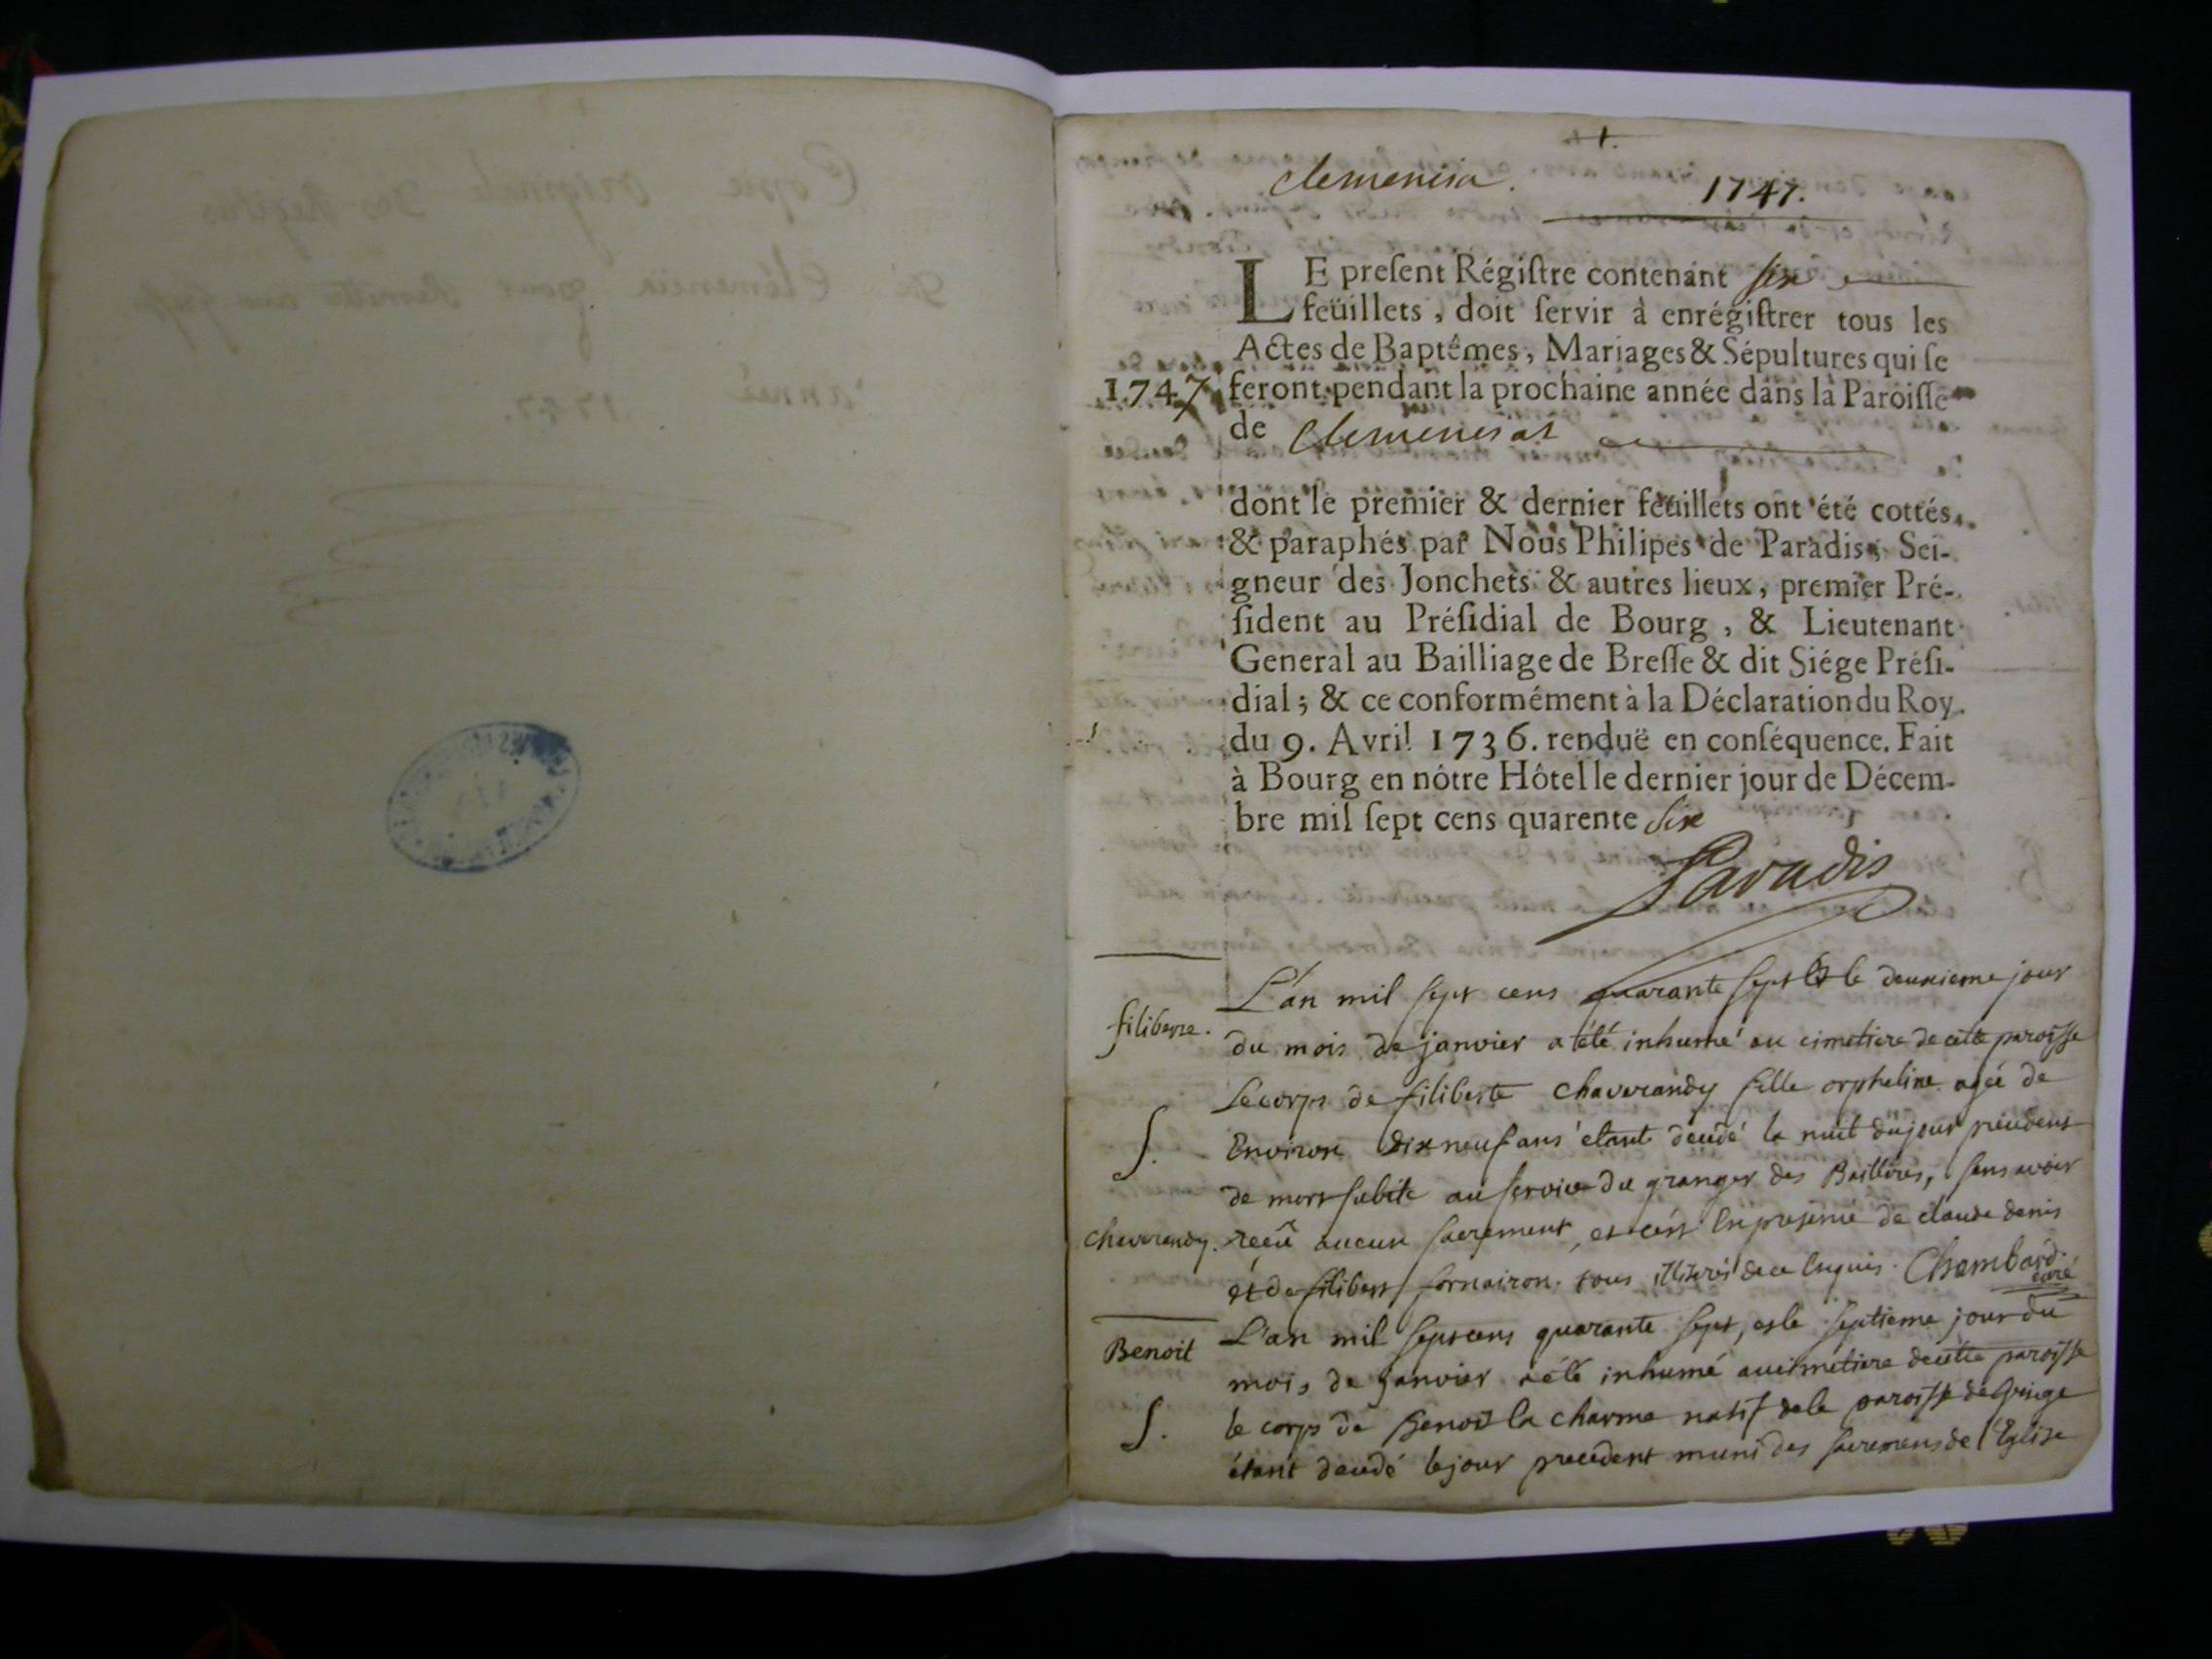 1.
Clemencia.
1747.
LE preſent Régiſtre contenant six
feüillets, doit ſervir à enrégiſtrer tous les
Actes de Baptêmes, Mariages & Sépultures qui ſe
1747 feront pendant la prochaine année dans la Paroiſſe
de Clemencias
dont le premier & dernier feüillets ont été cottés
& paraphés par Nous Philipes de Paradis, Sei-
gneur des Jonchets & autres lieux, premier Pré-
ſident au Préſidial de Bourg, & Lieutenant
General au Bailliage de Breſſe & dit Siége Préſi-
dial; & ce conformément à la Déclaration du Roy
du 9. Avril 1736. renduë en conſéquence. Fait
à Bourg en nôtre Hôtel le dernier jour de Décem-
bre mil ſept cens quarente six
Paradis
filiberte.
S.
chaverandy.
L'an mil sept cens quarante sept et le deuxieme jour
du mois de janvier a été inhumé au cimetiere de cette paroisse
le corps de filiberte chaverandy fille orpheline agée de
environ dix neuf ans étant decedé la nuit du jour precedent
de mort subite au service du granger des Baillires, sans avoir
recû aucun sacrement, et c'est en presence de claude denis
et de filibert fornairon. tous illiterés de ce enquis. Chambard
curé
Benoit
S.
L'an mil sept cens quarante sept, et le septieme jour du
mois de janvier a été inhumé au cimetiere de cette paroisse
le corps de Benoit la charme natif de la paroisse de
étant decedé le jour precedent muni des sacremens de l'Eglise
Copie originale des Registres
de Clémencia pour remettre au greffe
année 1747.